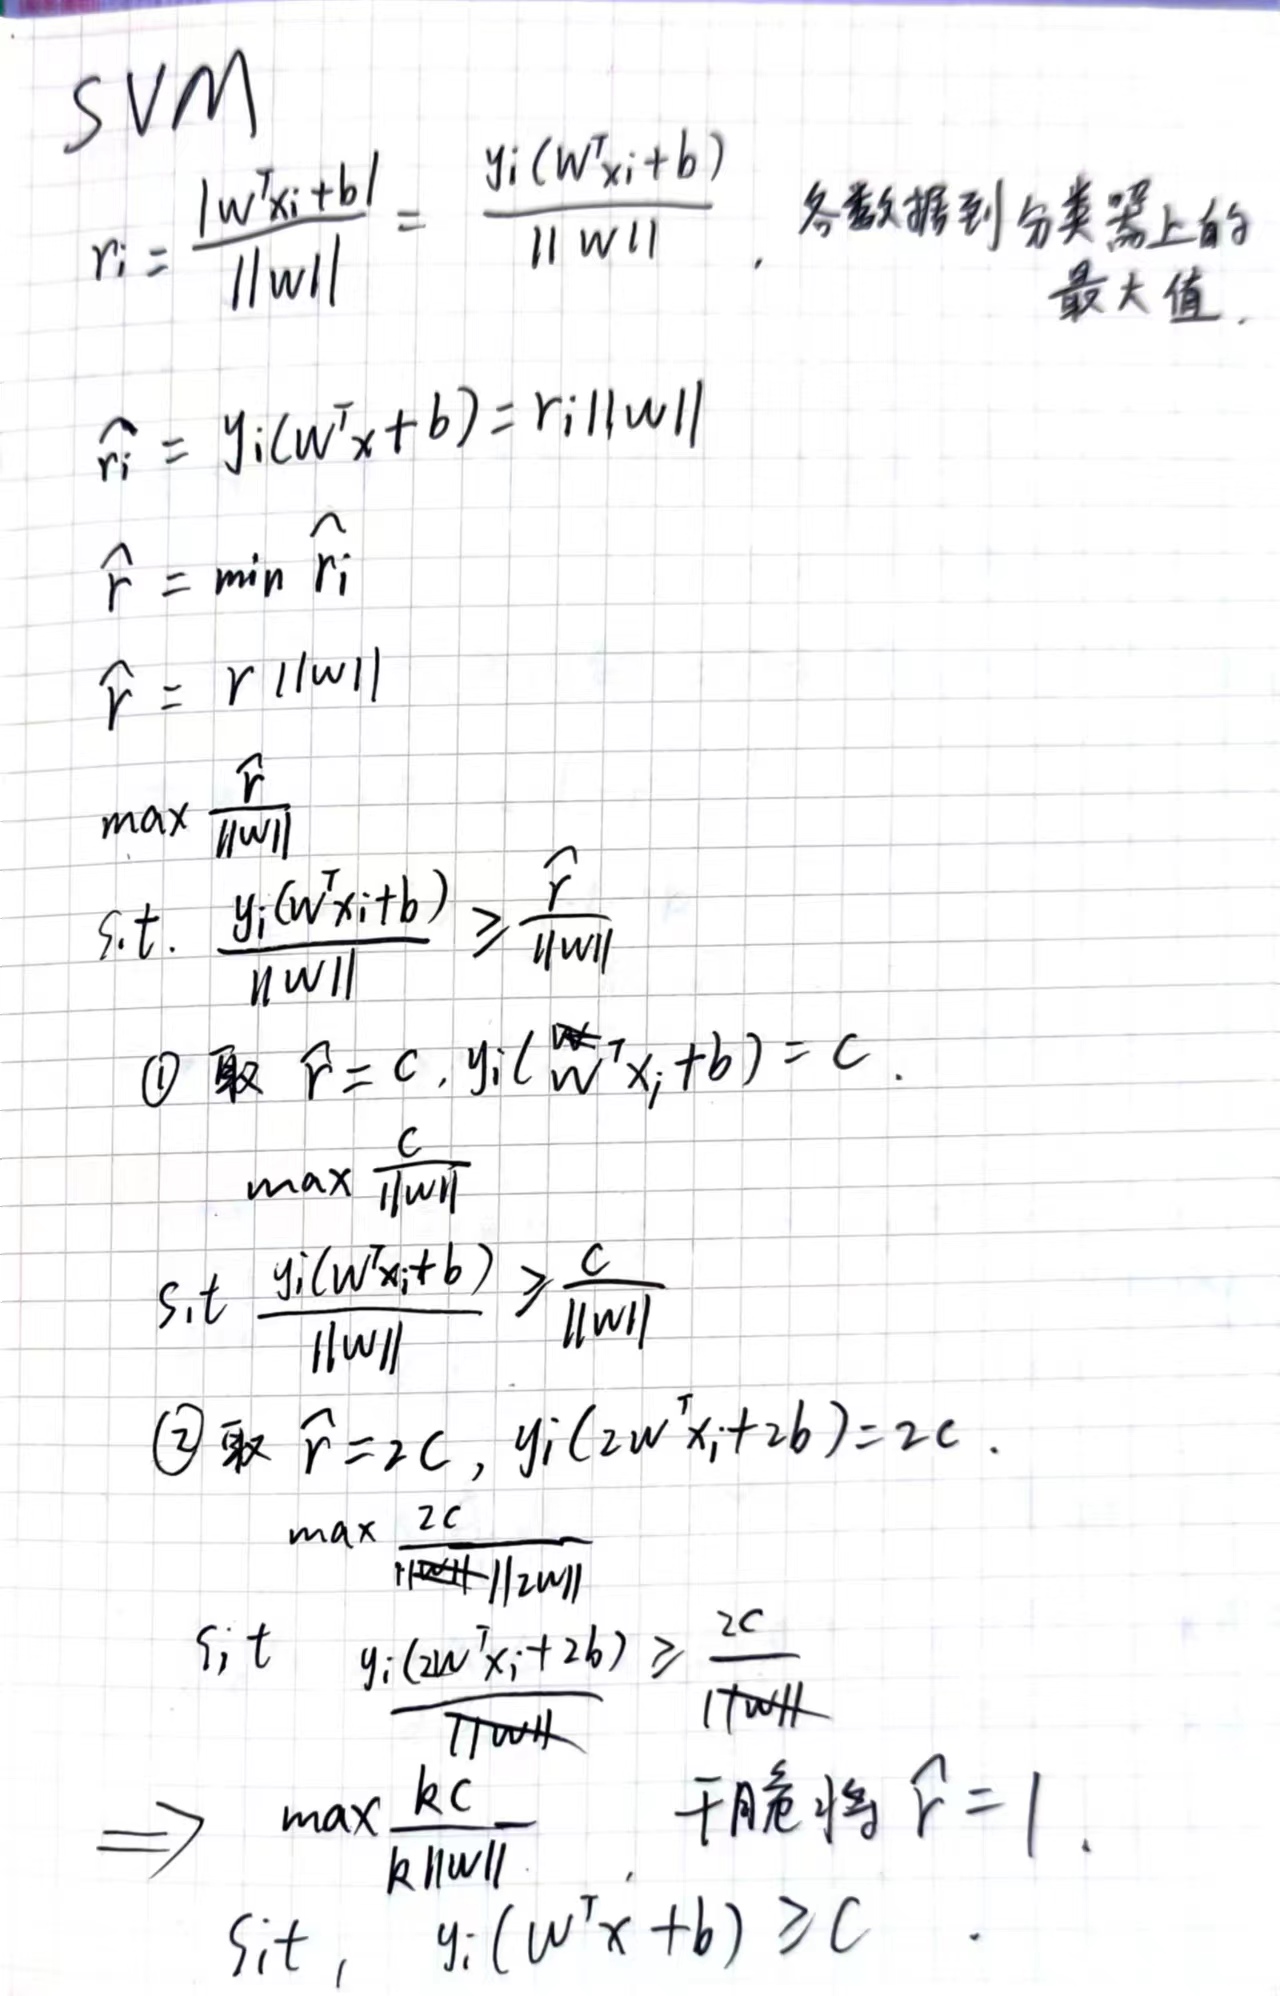 SVM
rᵢ = |wᵀxᵢ+b| / ||w|| = yᵢ(wᵀxᵢ+b) / ||w|| . 各数据到分类器上的
最大值.
r̂ᵢ = yᵢ(wᵀx+b) = rᵢ||w||
r̂ = min r̂ᵢ
r̂ = r||w||
max r̂ / ||w||
s.t. yᵢ(wᵀxᵢ+b) / ||w|| ≥ r̂ / ||w||
① 取 r̂ = c, yᵢ(wᵀxᵢ+b) = c .
max c / ||w||
s,t yᵢ(wᵀxᵢ+b) / ||w|| ≥ c / ||w||
② 取 r̂ = 2c, yᵢ(2wᵀxᵢ+2b) = 2c .
max 2c / ||2w||
s,t yᵢ(2wᵀxᵢ+2b) / ||w|| ≥ 2c / ||w||
⇒ max kc / k||w|| . 干脆将 r̂ = 1 .
s,t, yᵢ(wᵀx+b) ≥ c .